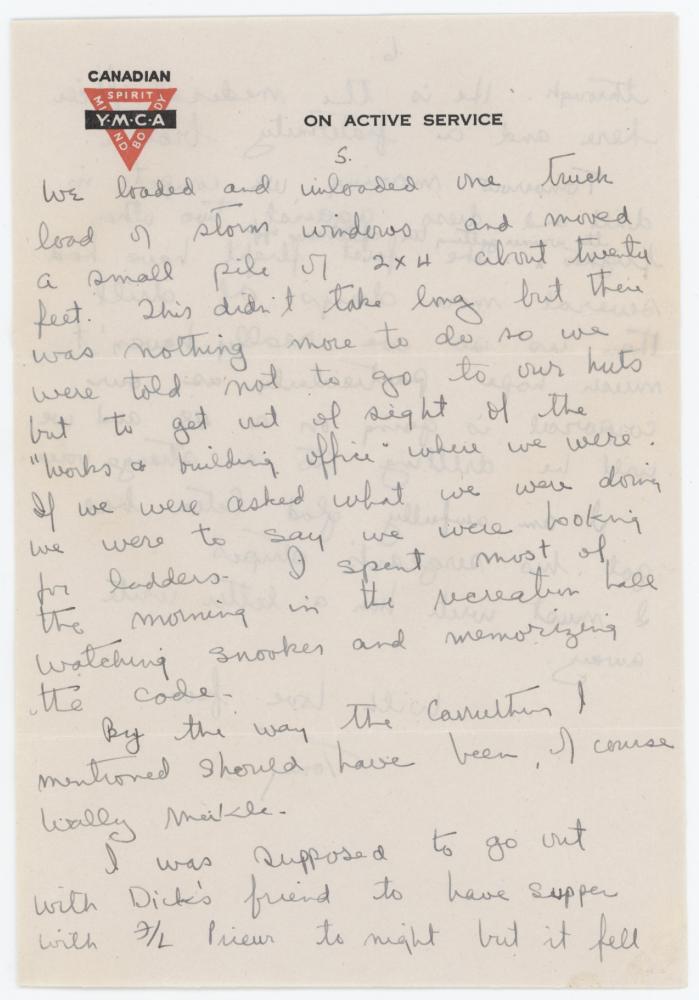 CANADIAN
SPIRIT
MIND
BODY
Y·M·C·A
ON ACTIVE SERVICE
5.
We loaded and unloaded one truck
load of storm windows and moved
a small pile of 2x4 about twenty
feet. This didn't take long but their
was nothing more to do so we
were told not to go to our huts
but to get out of sight of the
"Works & building office" where we were.
If we were asked what we were doing
we were to say we were looking
for ladders. I spent most of
the morning in the recreation hall
watching snooker and memorizing
the code.
By the way the Carruthers I
mentioned should have been, of course
Wally Meikle.
I was supposed to go out
with Dick's friend to have supper
with F/L Prieur to night but it fell